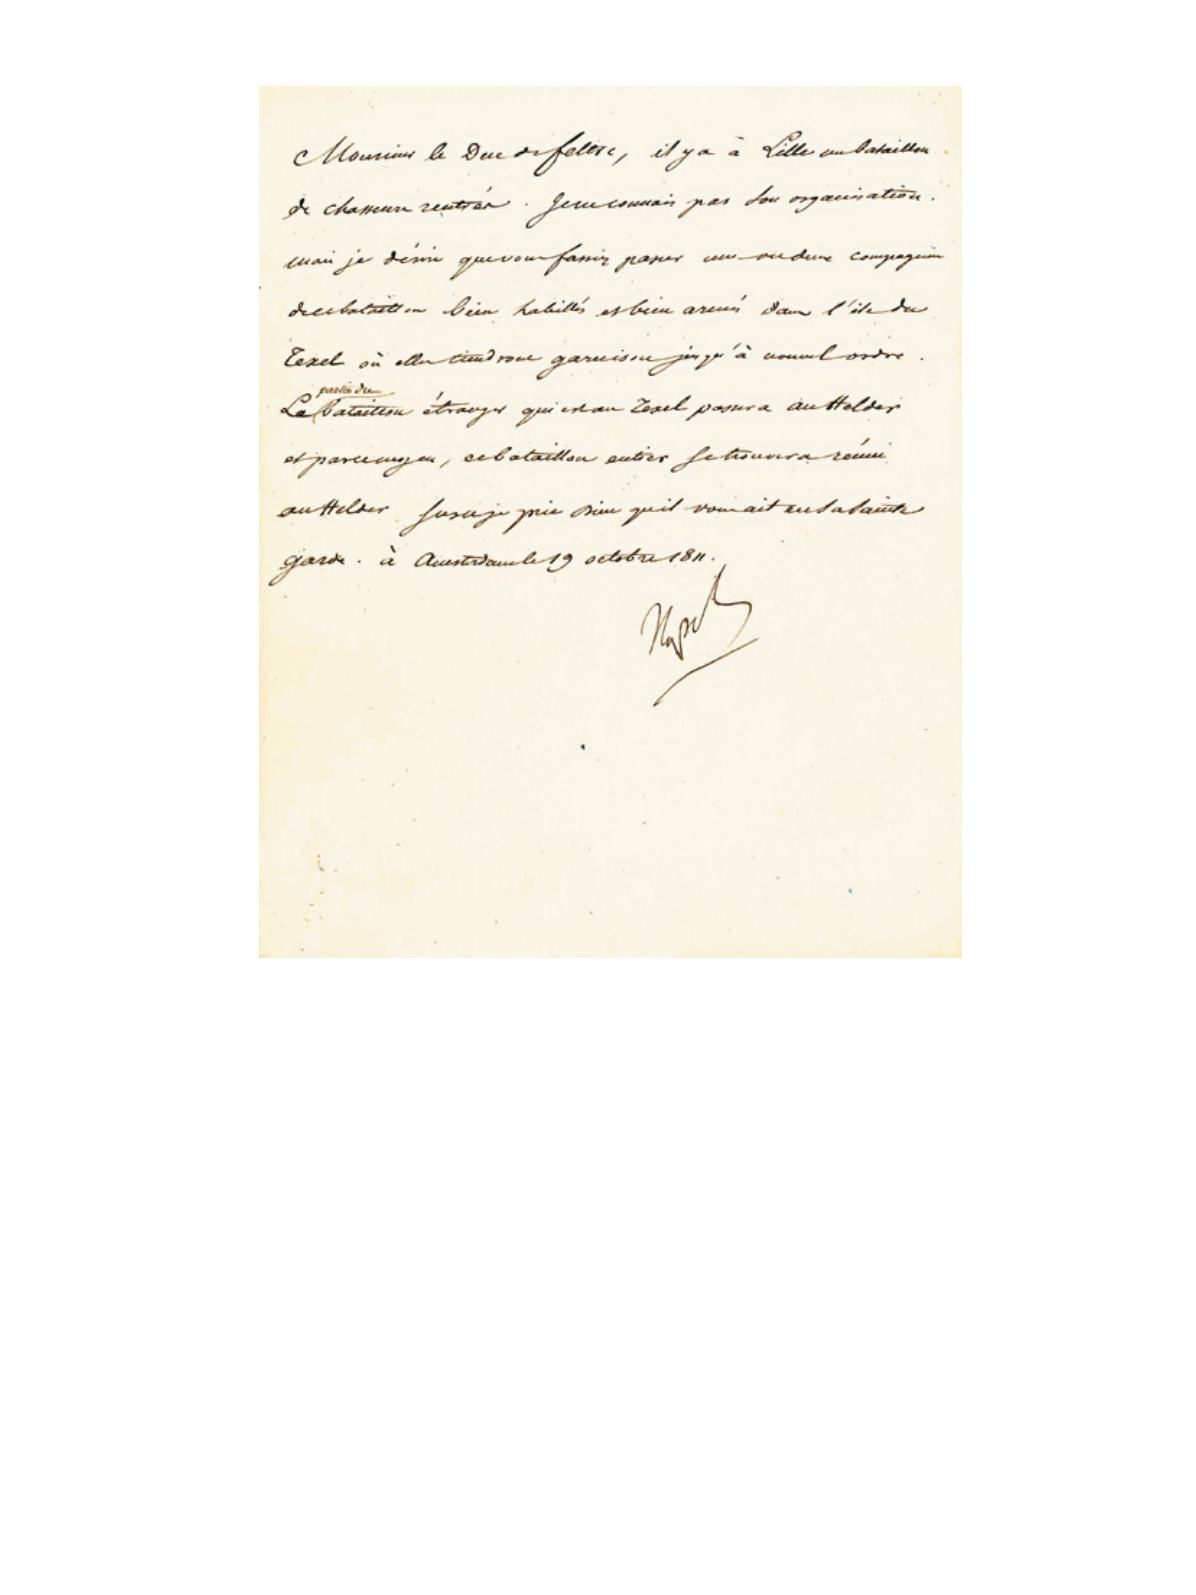 Monsieur le Duc de feltre, il y a à Lille un bataillon
de chasseurs rentrés. Je ne connais pas son organisation.
mais je désire que vous fassiez passer une ou deux compagnies
de ce bataillon bien habillés et bien armés dans l'ile du
Texel où elles tiendront garnison jusqu'à nouvel ordre.
partie du
La bataillon étranger qui est au Texel passera au Helder
et par ce moyen, ce bataillon entier se trouvera réuni
au Helder Sur ce je prie Dieu qu'il vous ait en sa sainte
garde. à Amsterdam le 19 octobre 1811.
Napol